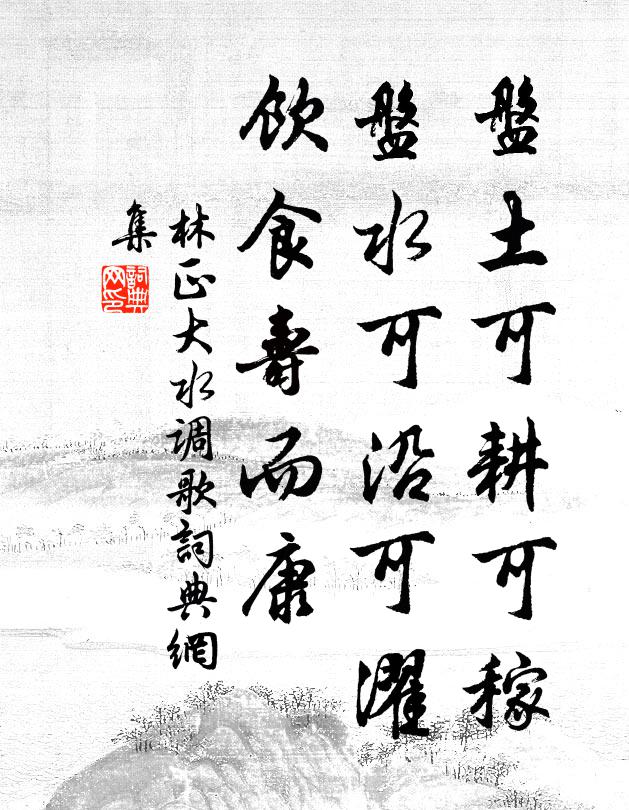 盤土可耕可稼
盤水可沿可濯
飲食壽而康
林正大水调歌詞典網
集
詞典
网印